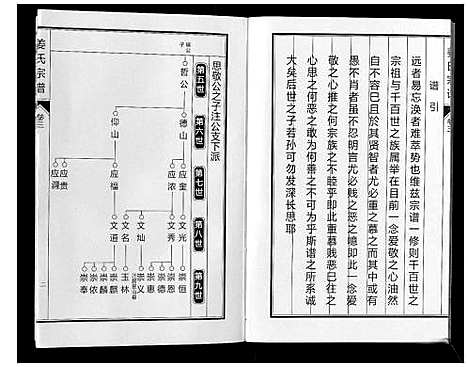 谱引
远者易忘涣者难萃势也维兹宗谱一修则千百世之
宗祖与千百世之族属举在目前一念爱敬之心油然
自不容已且於其贤智者尤必重之慕之而其中或有
愚不肖者虽不忍明言尤必贱之恶之噫即此一爱
敬之心推之何宗族之不睦乎即此重慕贱恶日往之
心思之何恶之敢为何善之不可为乎斯谱之所系诚
大矣后世之子若孙可勿发深长思耶
思敬公之子注公支下派
第五世
第六世
第七世
第八世
第九世
哲公
德山
仰山
应奎
应浓
应福
应贵
应洞
文光
文秀
文灿
文名
文道
崇恒
崇恩
崇德
崇惠
崇义
玉林
崇麒
崇麟
崇侬
崇奉
姜氏宗谱
卷三
二